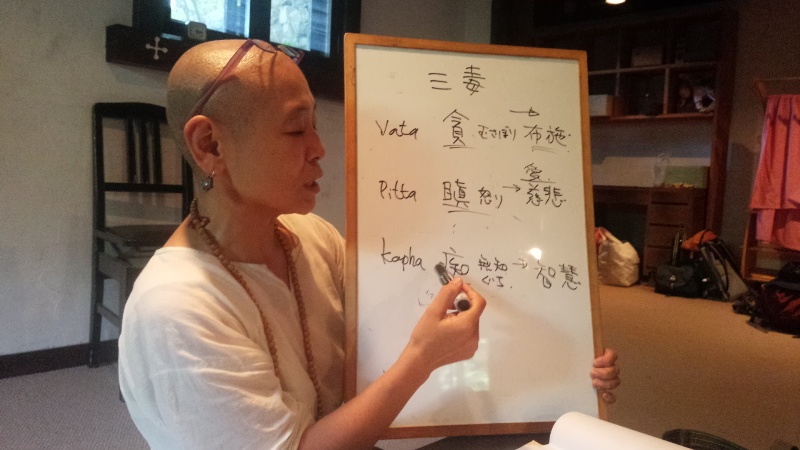 三毒
Vata 貪 むさぼり → 布施
愛
Pitta 瞋 怒り → 慈悲
Kapha 痴 無知 → 智慧
ぐち